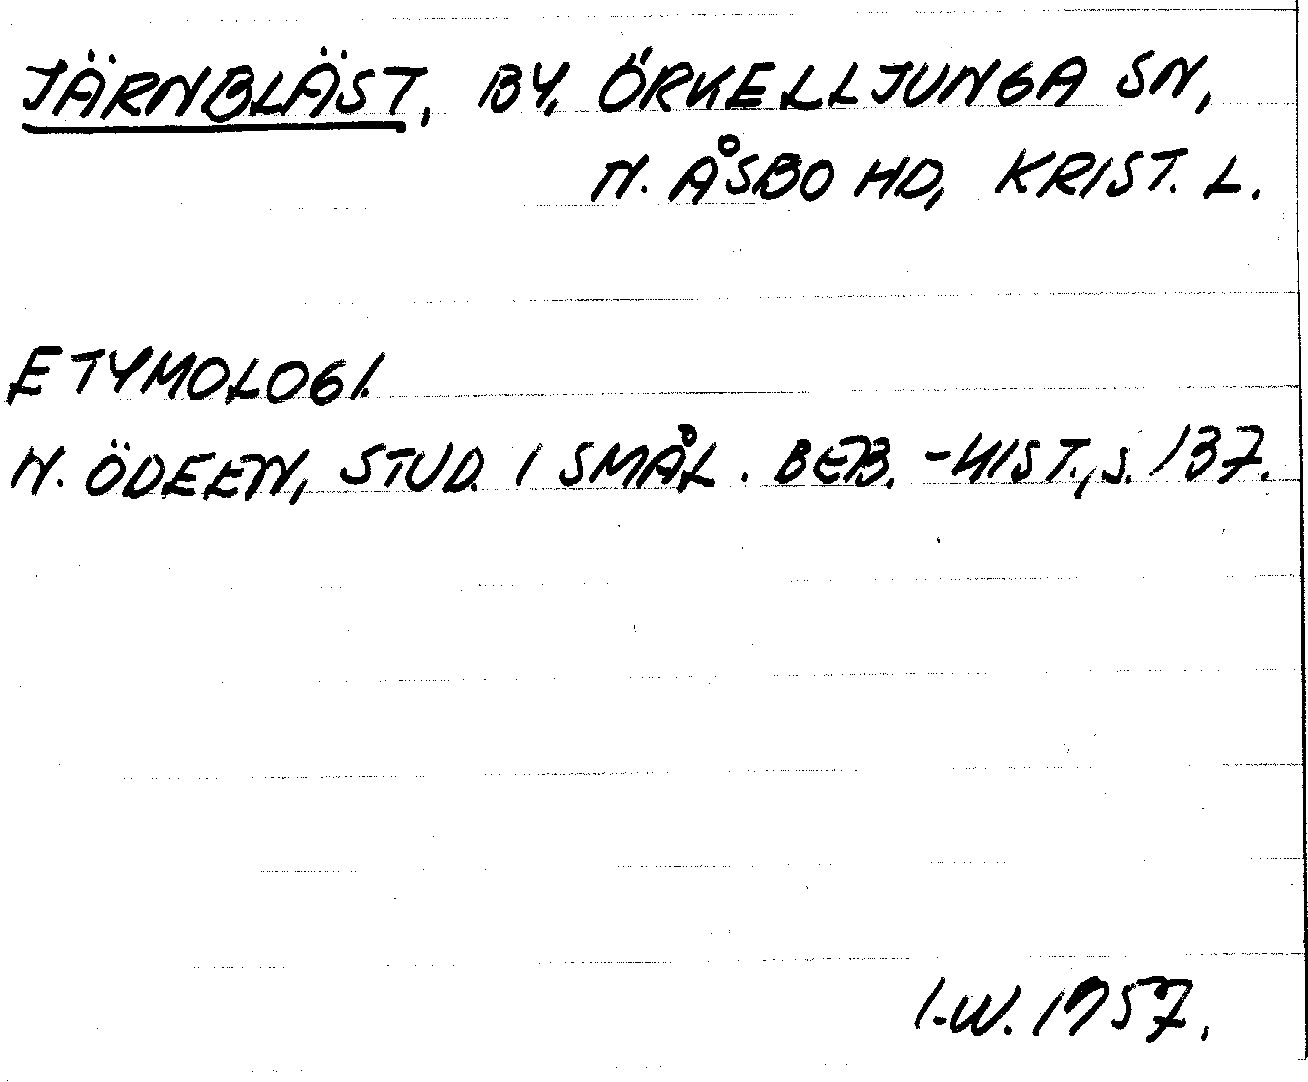 JÄRNBLÄST, BY, ÖRKELLJUNGA SN,
N. ÅSBO HD, KRIST. L.
ETYMOLOGI.
N. ÖDEEN, STUD. I SMÅL. BEB.-HIST., S. 137.
I.W. 1957.